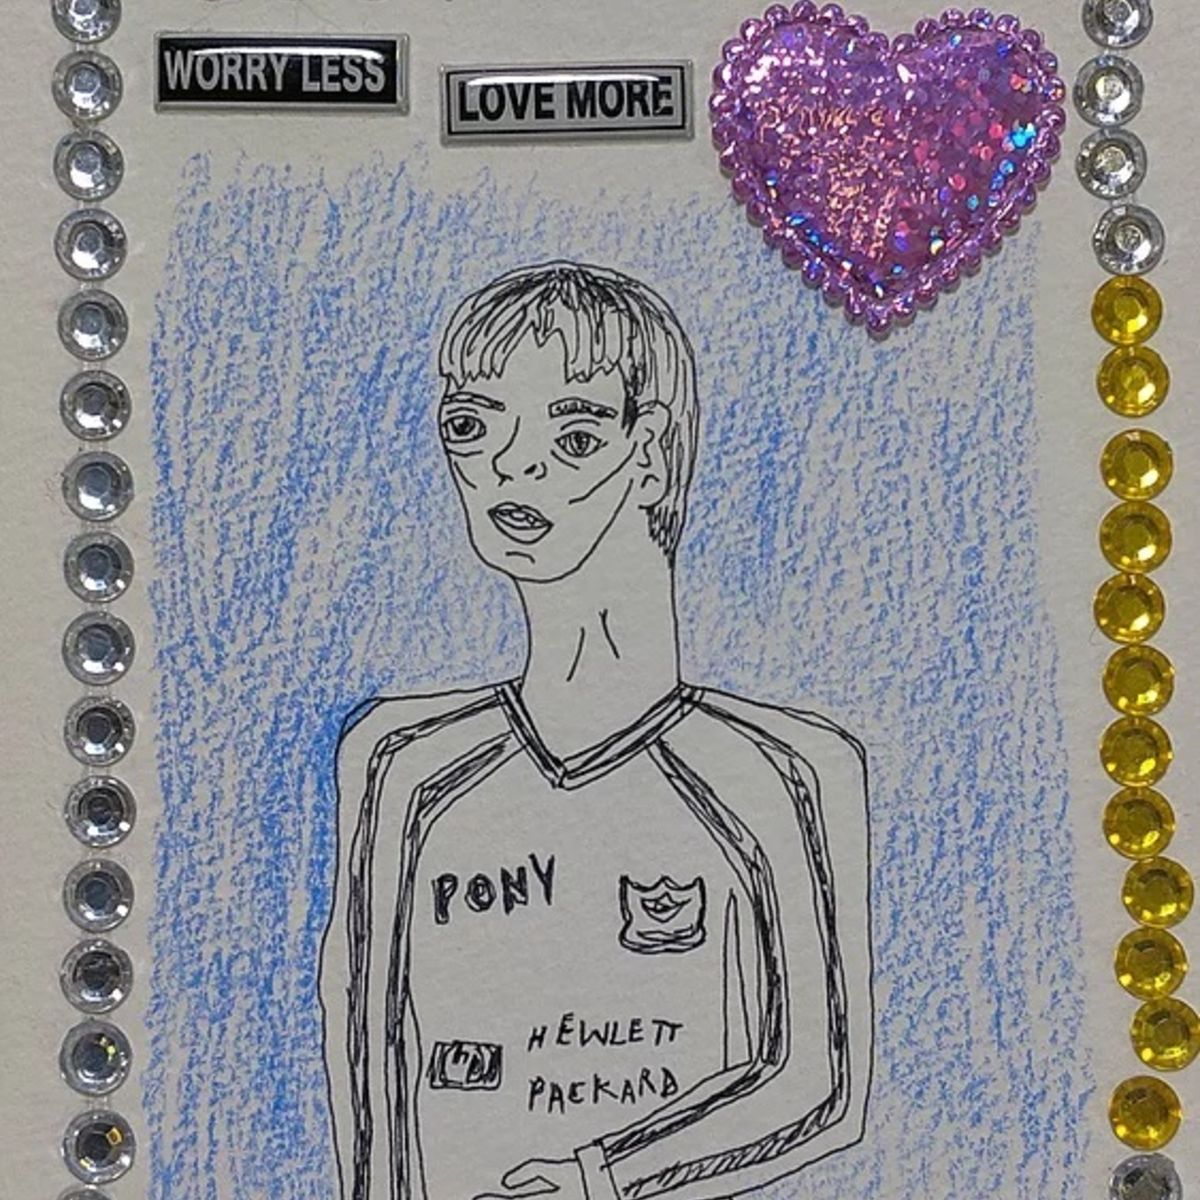 WORRY LESS
LOVE MORE
PONY
hp
HEWLETT
PACKARD